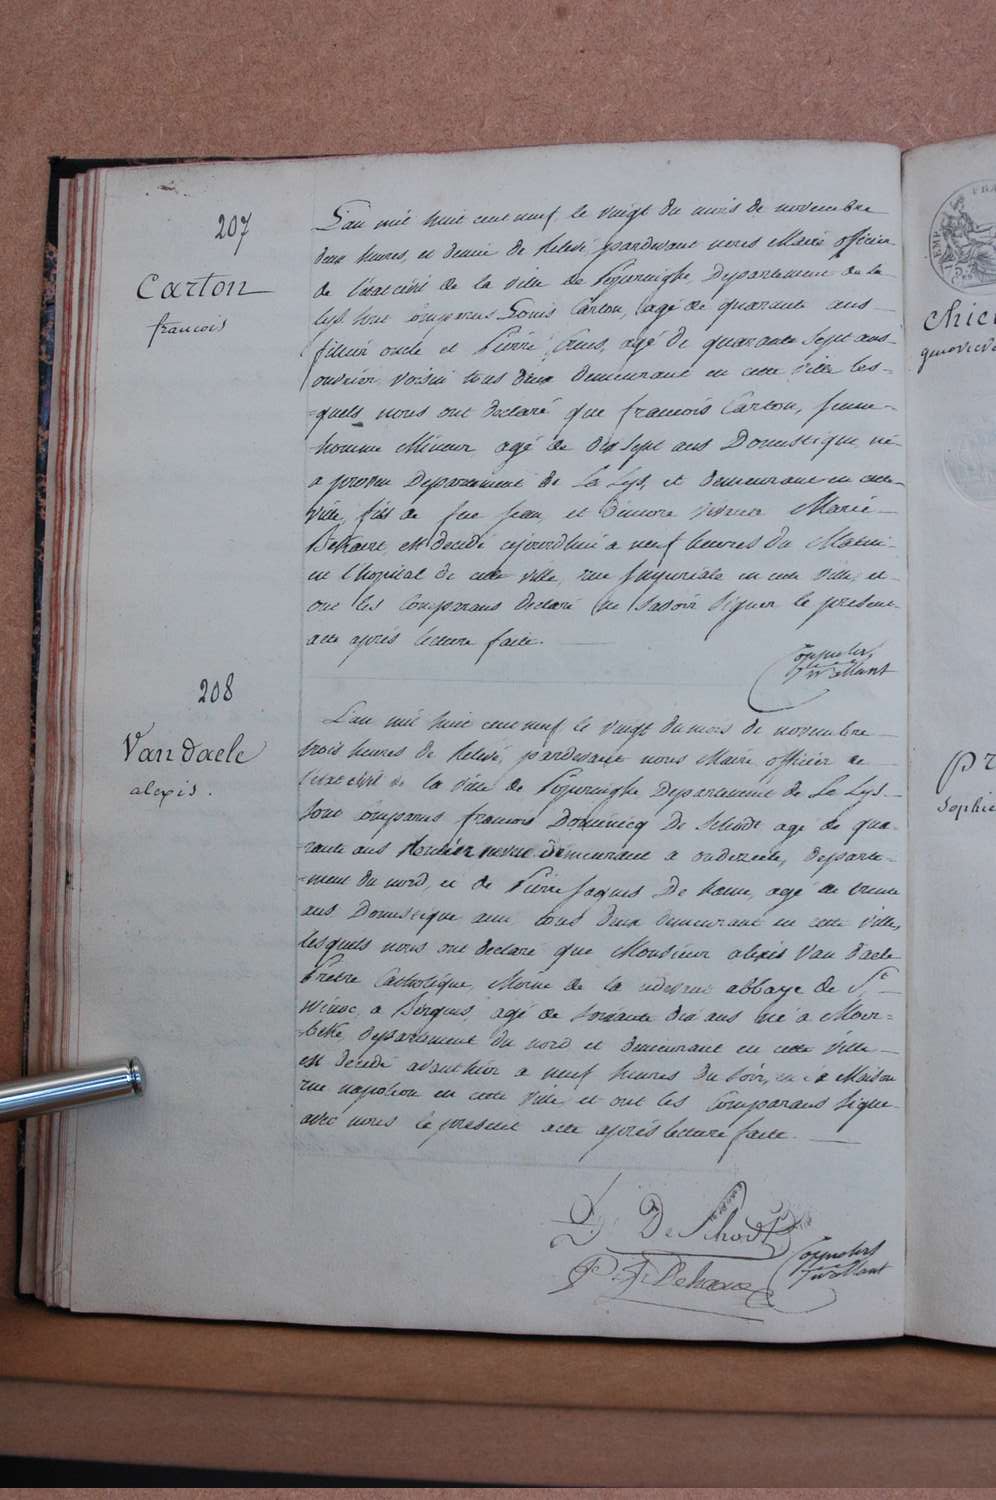 207
Carton
francois
L'an mil huit cent neuf, le vingt du mois de novembre
deux heures, et demie de Relevé, pardevant nous Maire officier
de l'etat civil de la ville de Poperinghe, Departement de la
Lys. sont comparus Louis Carton, agé de quarante ans
oncle et Pierre agé de quarante sept ans
ouvrier voisin tous deux demeurant en cette ville les-
-quels nous ont declaré que francois Carton, jeune-
-homme Mineur agé de dix sept ans Domestique né
a proven Departement de La Lys, et demeurant en cette
ville, fils de feu Jean, et d'encore vivante Marie
est decedé ajourdhui a neuf heures du Matin
en l'hopital de cette ville, rue Imperiale en cette ville, et
ont les Comparans declaré ne savoir signer le present
acte aprés lecture faite.
208
Van daele
alexis.
L'an mil huit cent neuf, le vingt du mois de novembre
trois heures de Relevé, pardevant nous Maire officier de
l'etat civil de la ville de Poperinghe Departement de La Lys
sont comparus francois Dominicq De Schodt agé de qua-
-rante ans neveu demeurant a ondezeele, departe-
-ment du nord, et de Pierre Jaques De haene, agé de trente
ans, Domestique ami tous deux demeurant en cette ville,
lesquels nous ont declaré que Monsieur alexis Van daele
Prêtre Catholique, Moine de la abbaye de St
Winoc, a Bergues, agé de soixante dix ans né a Moer-
-beke departement du nord et demeurant en cette ville
est decedé avanthier a neuf heures du soir, en sa Maison
rue napoleon en cette ville et ont les Comparans signé
avec nous le present acte aprés lecture faite.
De Schodt
P. J. Dehaene
chier
genevieve
sophie